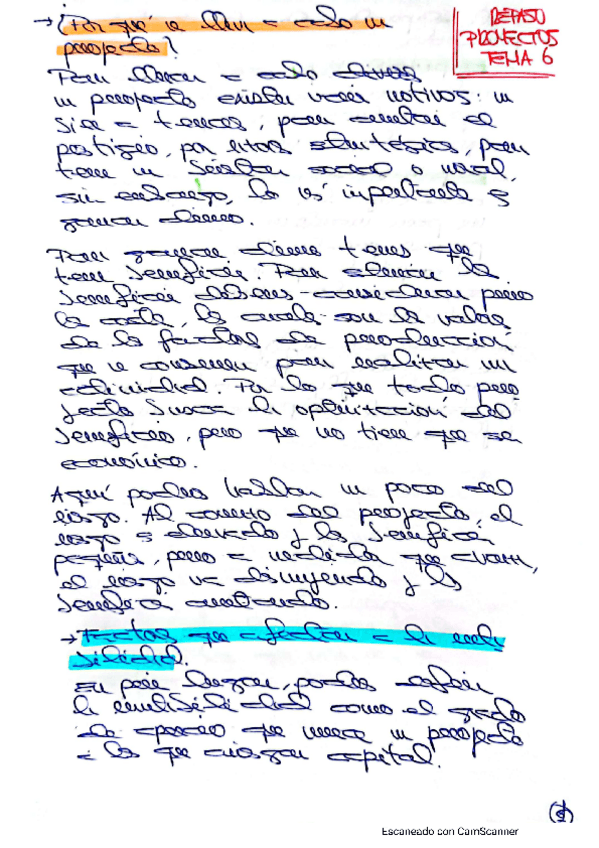 → ¿Por qué se lleva a cabo un
proyecto?
REPASO
PROYECTOS
TEMA 6
Para llevar a cabo
un proyecto existen varios motivos: un
por
tiene un social o moral,
sin embargo, lo más importante es
ganar dinero.
Para ganar dinero tenemos que
tener beneficios. Para los
beneficios debemos considerar
los costes, los cuales son los valores
de los factores de producción
que se consumen para realizar una
actividad. Por lo que todo pro-
yecto busca la optimización del
beneficio, pero que no tiene que ser
económico.
Aquí podemos hablar un poco del
riesgo. Al comienzo del proyecto, el
riesgo es elevado y los beneficios
pequeños, pero a medida que avanza,
el riesgo va disminuyendo y los
beneficios aumentando.
→ Factores que afectan a la renta-
bilidad.
En primer lugar, podemos definir
la rentabilidad como el grado
de aprecio que merece un proyecto
a los que arriesgan capital.
Escaneado con CamScanner